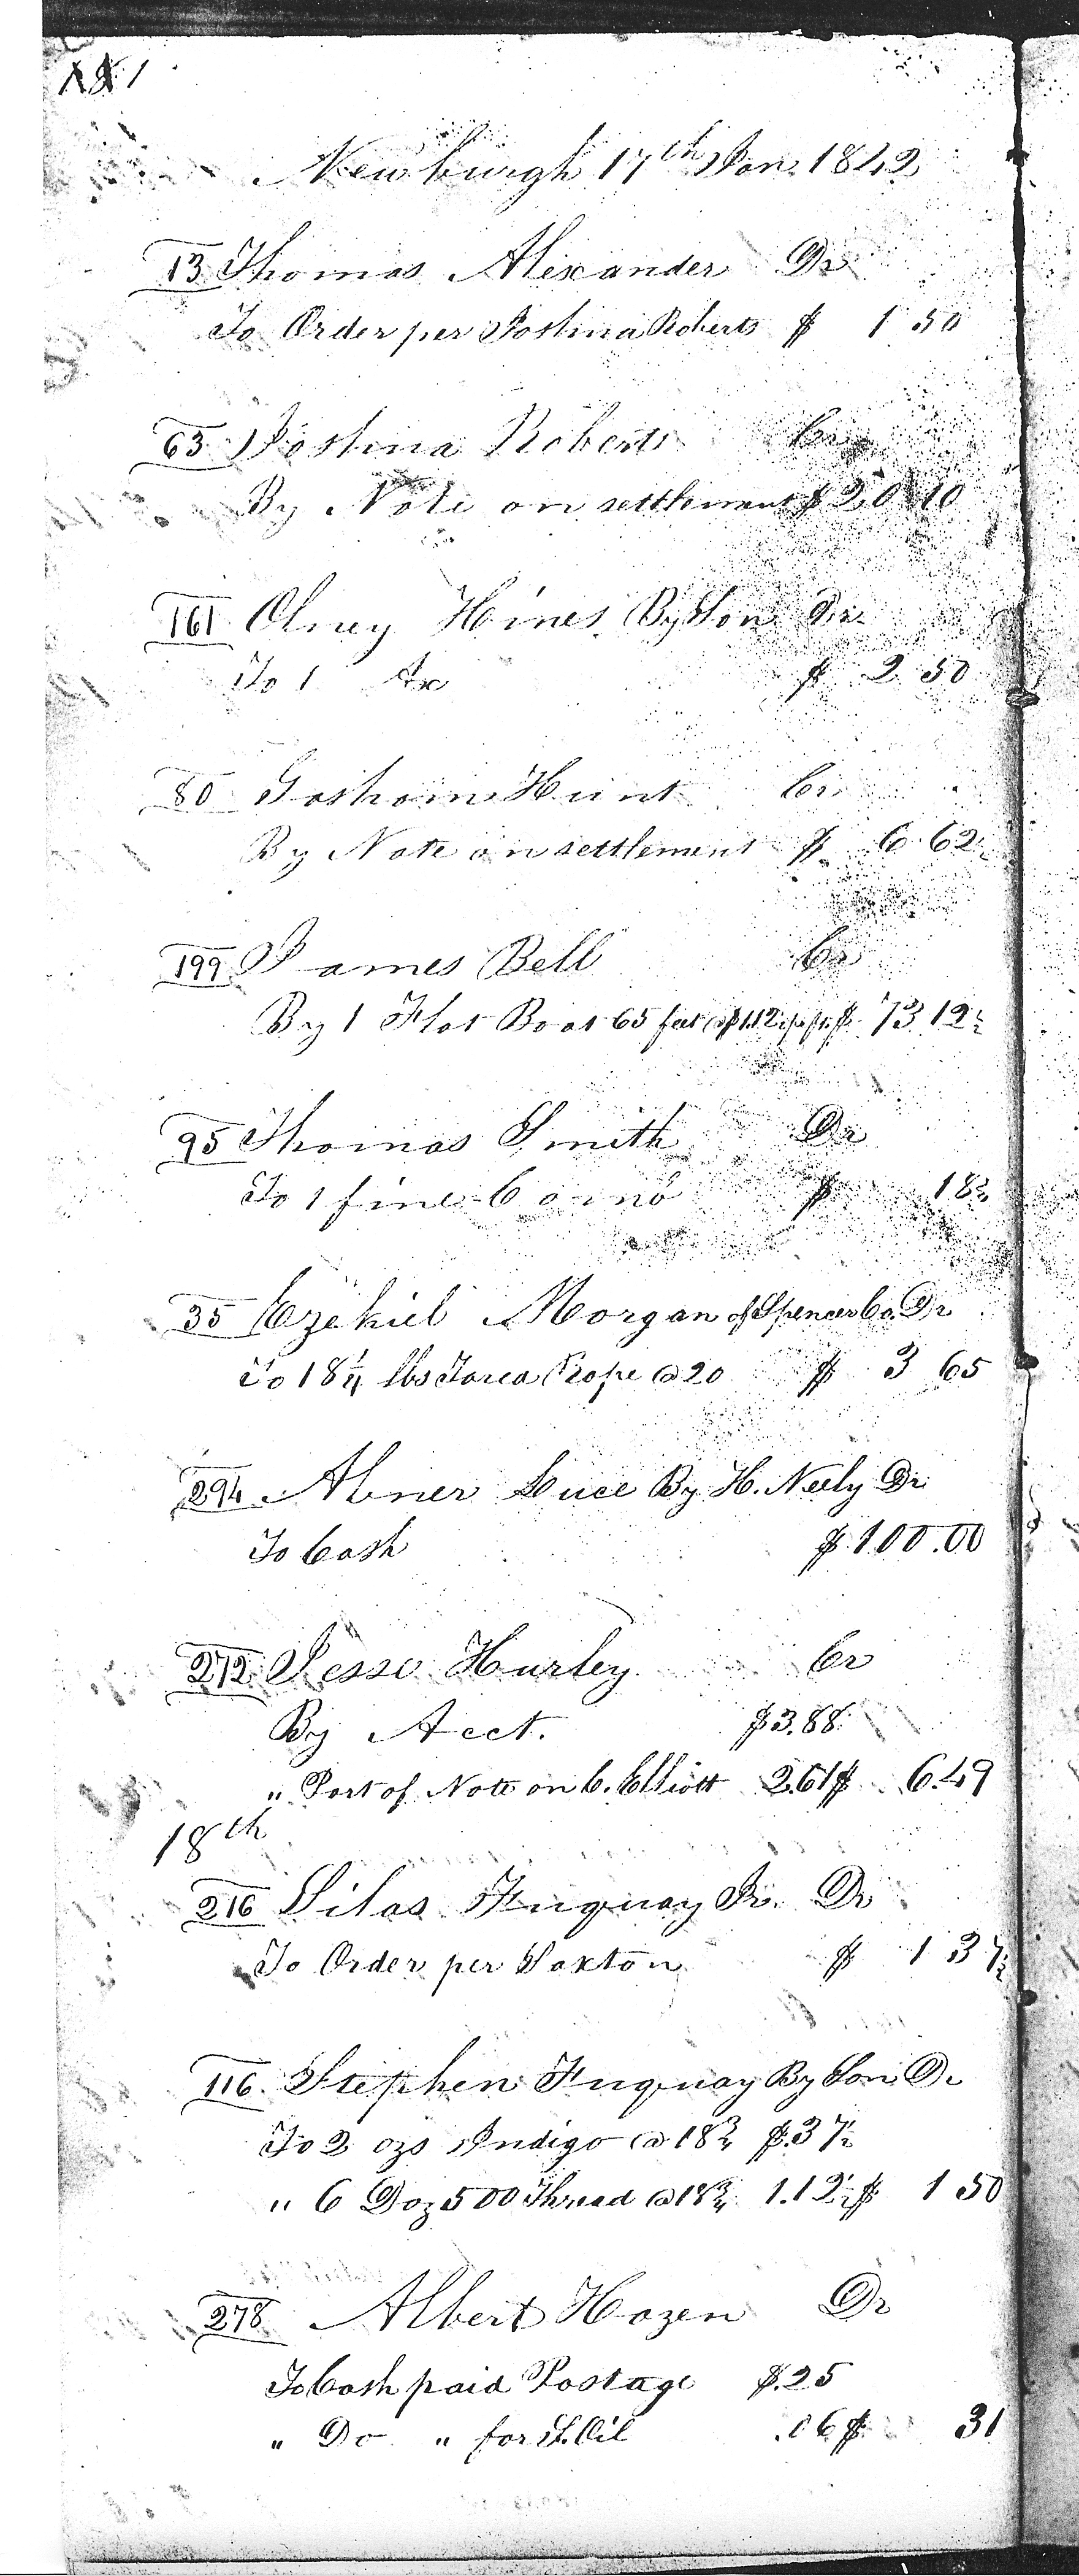 Newburgh 17th Jan. 1842
13 Thomas Alexander Dr
To Order per Joshua Roberts $ 1 50
63 Joshua Roberts Cr
By Note on settlement $ 20 10
161 Olney Hines By Son Dr
To 1 Ax $ 2 50
80 Goshorn Hunt Cr
By Note on settlement $ 6 62½
199 James Bell Cr
By 1 Flat Boat 65 feet @ $1.12½ pr ft. $ 73 12½
95 Thomas Smith Dr
To 1 fine Comb $ 18¾
35 Ezekiel Morgan of Spencer Co. Dr
To 18¼ lbs Tared Rope @ 20 $ 3 65
294 Abner Luce By H. Neely Dr
To Cash $ 100.00
272 Jesse Hurley Cr
By Acct. $3.88
" Part of Note on C. Elliott 2.61 $ 6.49
18th
216 Silas Fuquay Jr. Dr
To Order per Saxton $ 1 37½
116. Stephen Fuquay By Son Dr
To 2 ozs Indigo @ 18¾ $.37½
" 6 Doz 500 Thread @ 18¾ 1.12½ $ 1 50
278 Albert Hazen Dr
To Cash paid Postage $.25
" Do " for Oil .06 $ 31